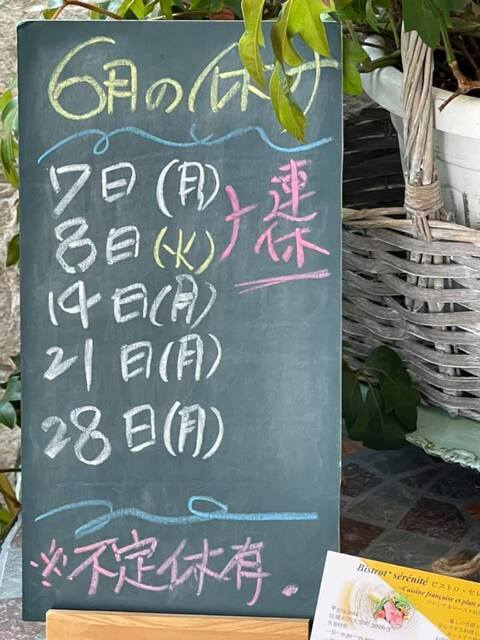 6月の休み
7日(月)
8日(火)
連休
14日(月)
21日(月)
28日(月)
※不定休有.
Bistrot* sérénité ビストロ・セレ
~Cuisine française et plats